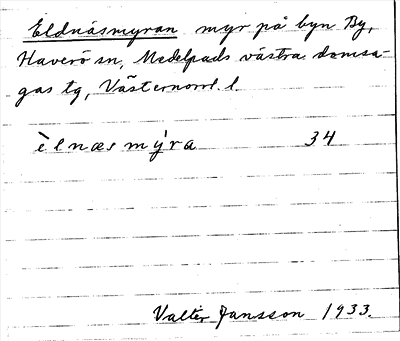 Eldnäsmyran myr på byn By,
Haverö sn, Medelpads västra domsa-
gas tg, Västernorrl. l.
èlnæsmy̌ra 34
Valter Jansson 1933.